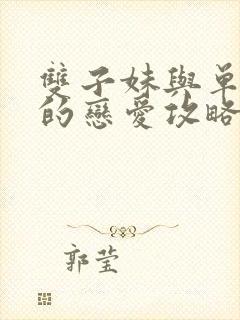 雙子妹與單
的戀愛攻略
郭莹